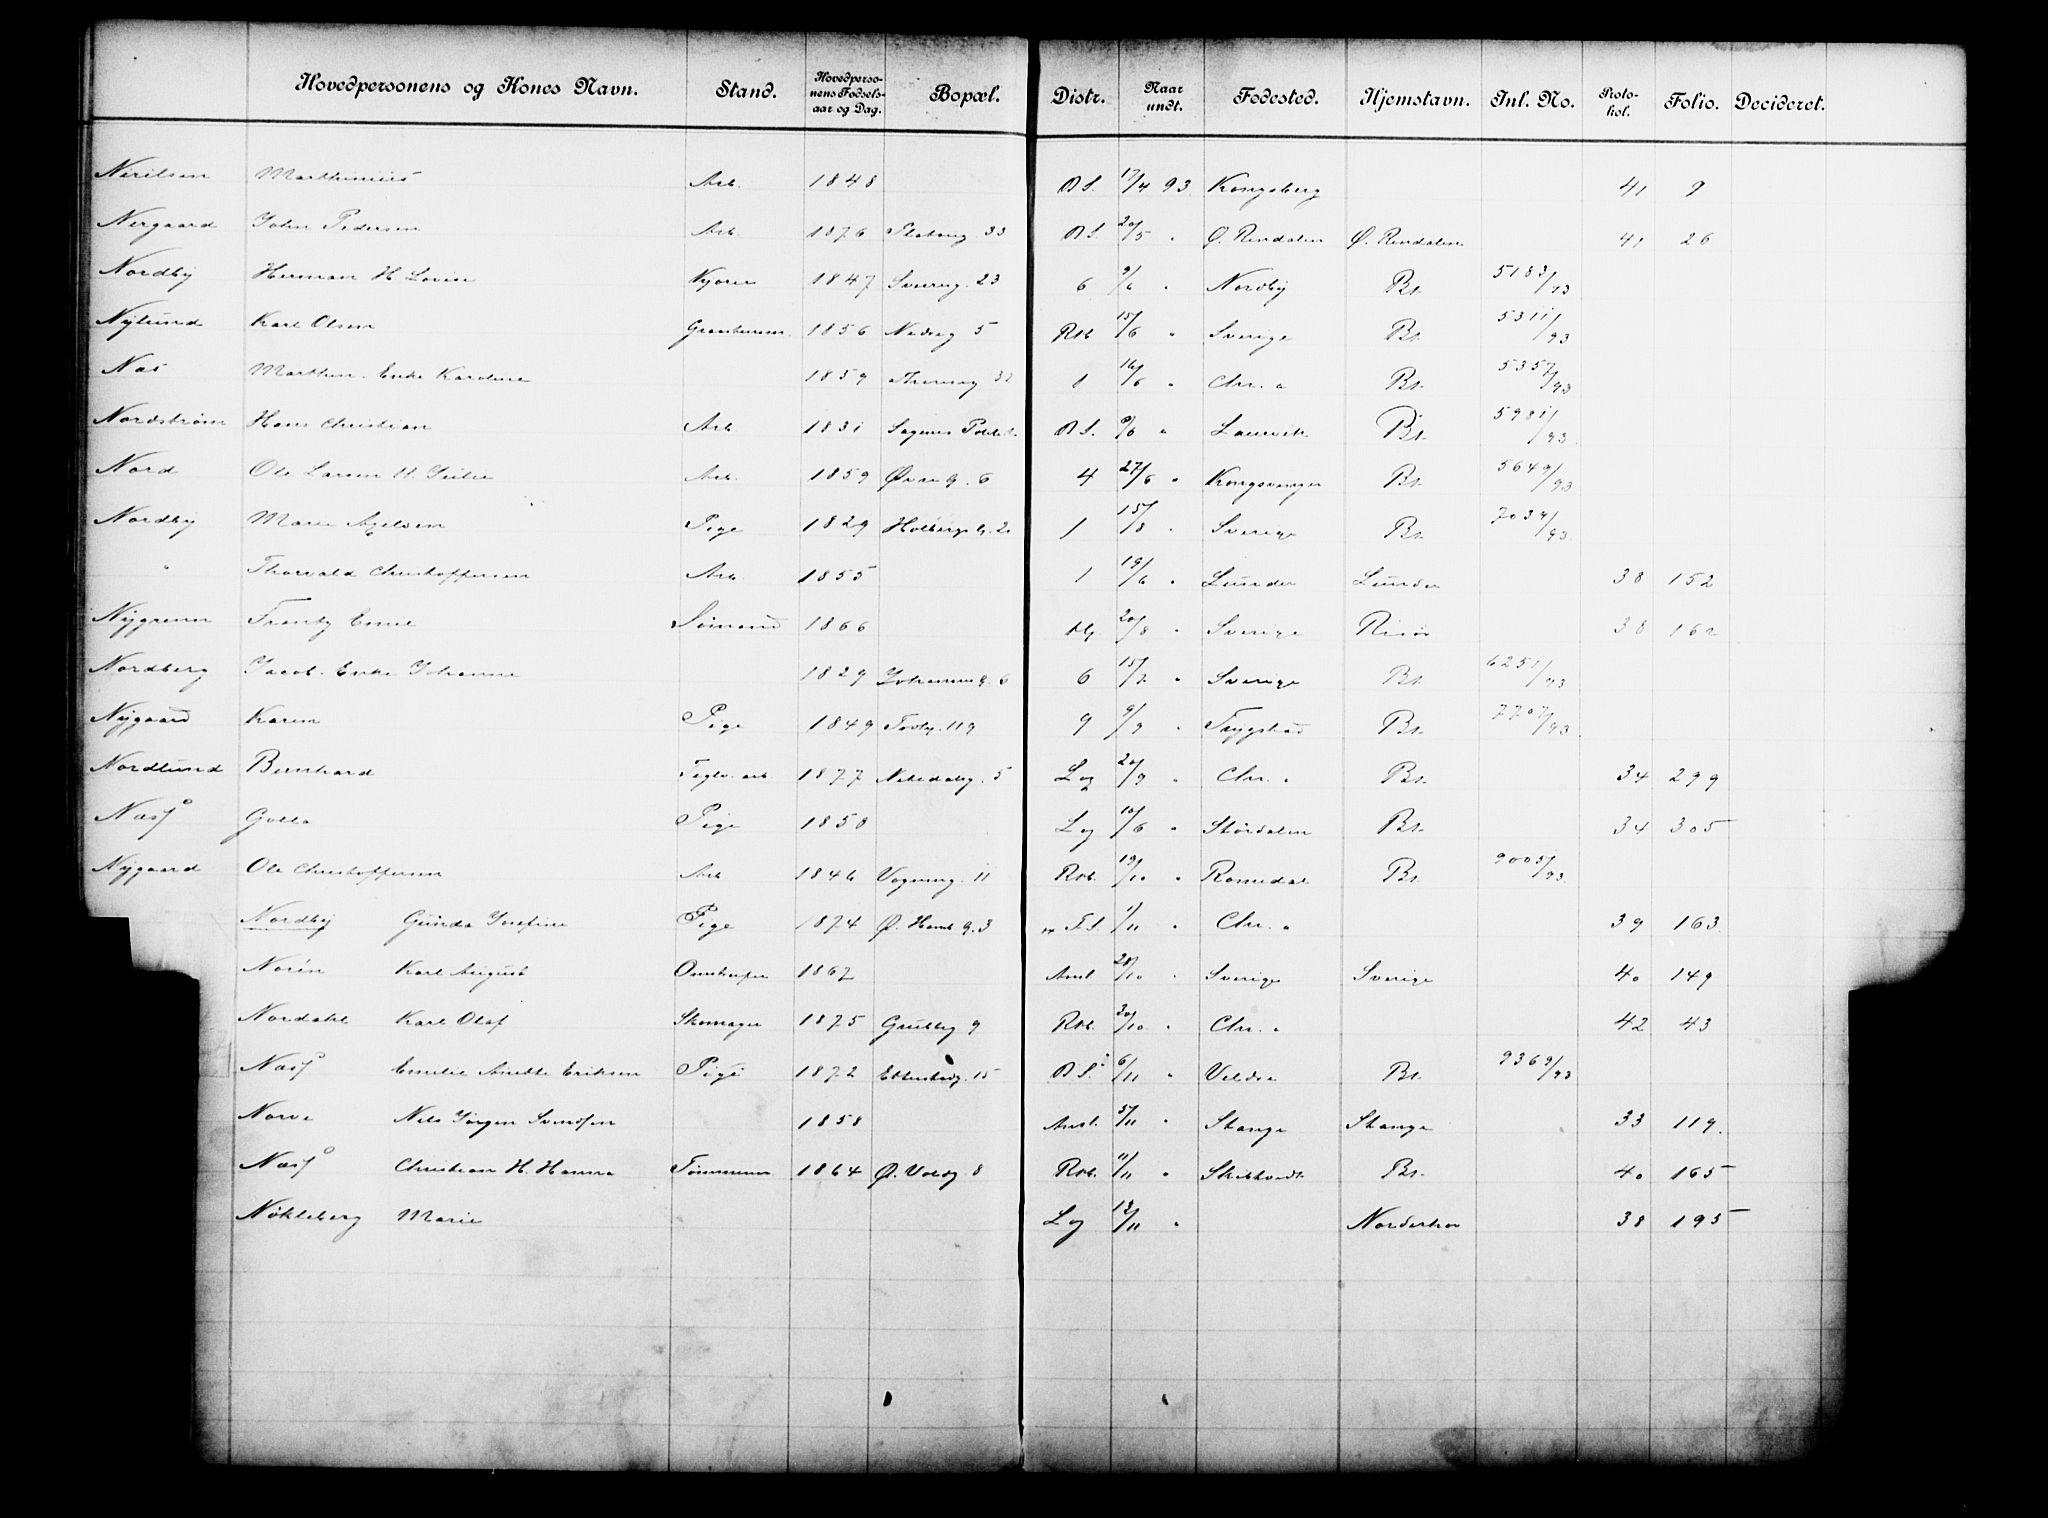 Hovedpersonens og Kones Navn. Stand. Hovedpersonens Fødselsaar og Dag. Bopæl. Distr. Naar undt. Fødested. Hjemstavn. Inl. No. Protokol. Folio. Decideret.
Nerilsen Marthinius Arb. 1848 B S. 17/4 93 Kongsberg 41 9
Nergaard John Pedersen Arb. 1876 33 B S. 20/5 " Ø. Rendalen Ø. Rendalen 41 26
Nordby Herman H. Lovise Kjører 1847 Sverreg. 23 6 9/6 " Nordby Bt. 5183/93
Nylund Karl Olsen 1856 Nedreg 5 Rtb 15/6 " Sverige Bt. 5311/93
Næs Marthin. Enke Karoline 1859 32 1 16/6 " Chr. a Bt. 5357/93
Nordstrøm Hans Christian Arb 1831 Sagenes B S. 9/6 " Laurvik Bt. 5981/93
Nord Ole Larsen H. Arb. 1859 Øvre g. 6 4 27/6 " Kongsvinger Bt. 5649/93
Nordby Marie Axelsen Pige 1829 Holbergs G. 2 1 15/8 " Sverige Bt. 7034/93
" Thorvald Christoffersen Arb. 1855 1 19/6 " Lunder Lunder 38 152
Nygrenn Frantz Emil Sømand 1866 20/8 " Sverige Risør 38 162
Nordberg Jacob. Enke Johanne 1829 Johannes g. 6 6 15/7 " Sverige Bt. 6251/93
Nygaard Karen Pige 1849 Toftg. 119 9 9/9 " Trygstad Bt. 7707/93
Nordlund Bernhard Teglv. arb. 1877 Nitedalsg. 5 Lg 20/9 " Chr. a Bt. 34 299
Næss Golla Pige 1858 Lg 10/6 " Størdalen Bt. 34 305
Nygaard Ole Christoffersen Arb 1846 Vognmg. 11 Rtb. 19/10 " Romedal Bt. 9005/93
Nordby Gunda Josefine Pige 1874 Ø. Hamb g. 3 F.S 1/11 " Chr. a 39 163.
Norén Karl August Omstreifer 1867 Anst 28/10 " Sverige Sverige 40 149
Nordahl Karl Olaf Skomager 1875 Grubbg 9 Rtb. 30/10 " Chr. a 42 43
Næss Emelie Anette Eriksen Pige 1872 Etterstadg. 15 B S. 6/11 " Veldre Bt. 9369/93
Norve Nils Jørgen Svendsen 1858 Anst. 5/11 " Stange Stange 33 119.
Næss Christian H. Hanna Tømmerm 1864 Ø. Voldg 8 Rtb. 11/11 " Skibtvedt Bt. 40 165
Nøkleberg Marie Lg 12/11 " Norderhov 38 195